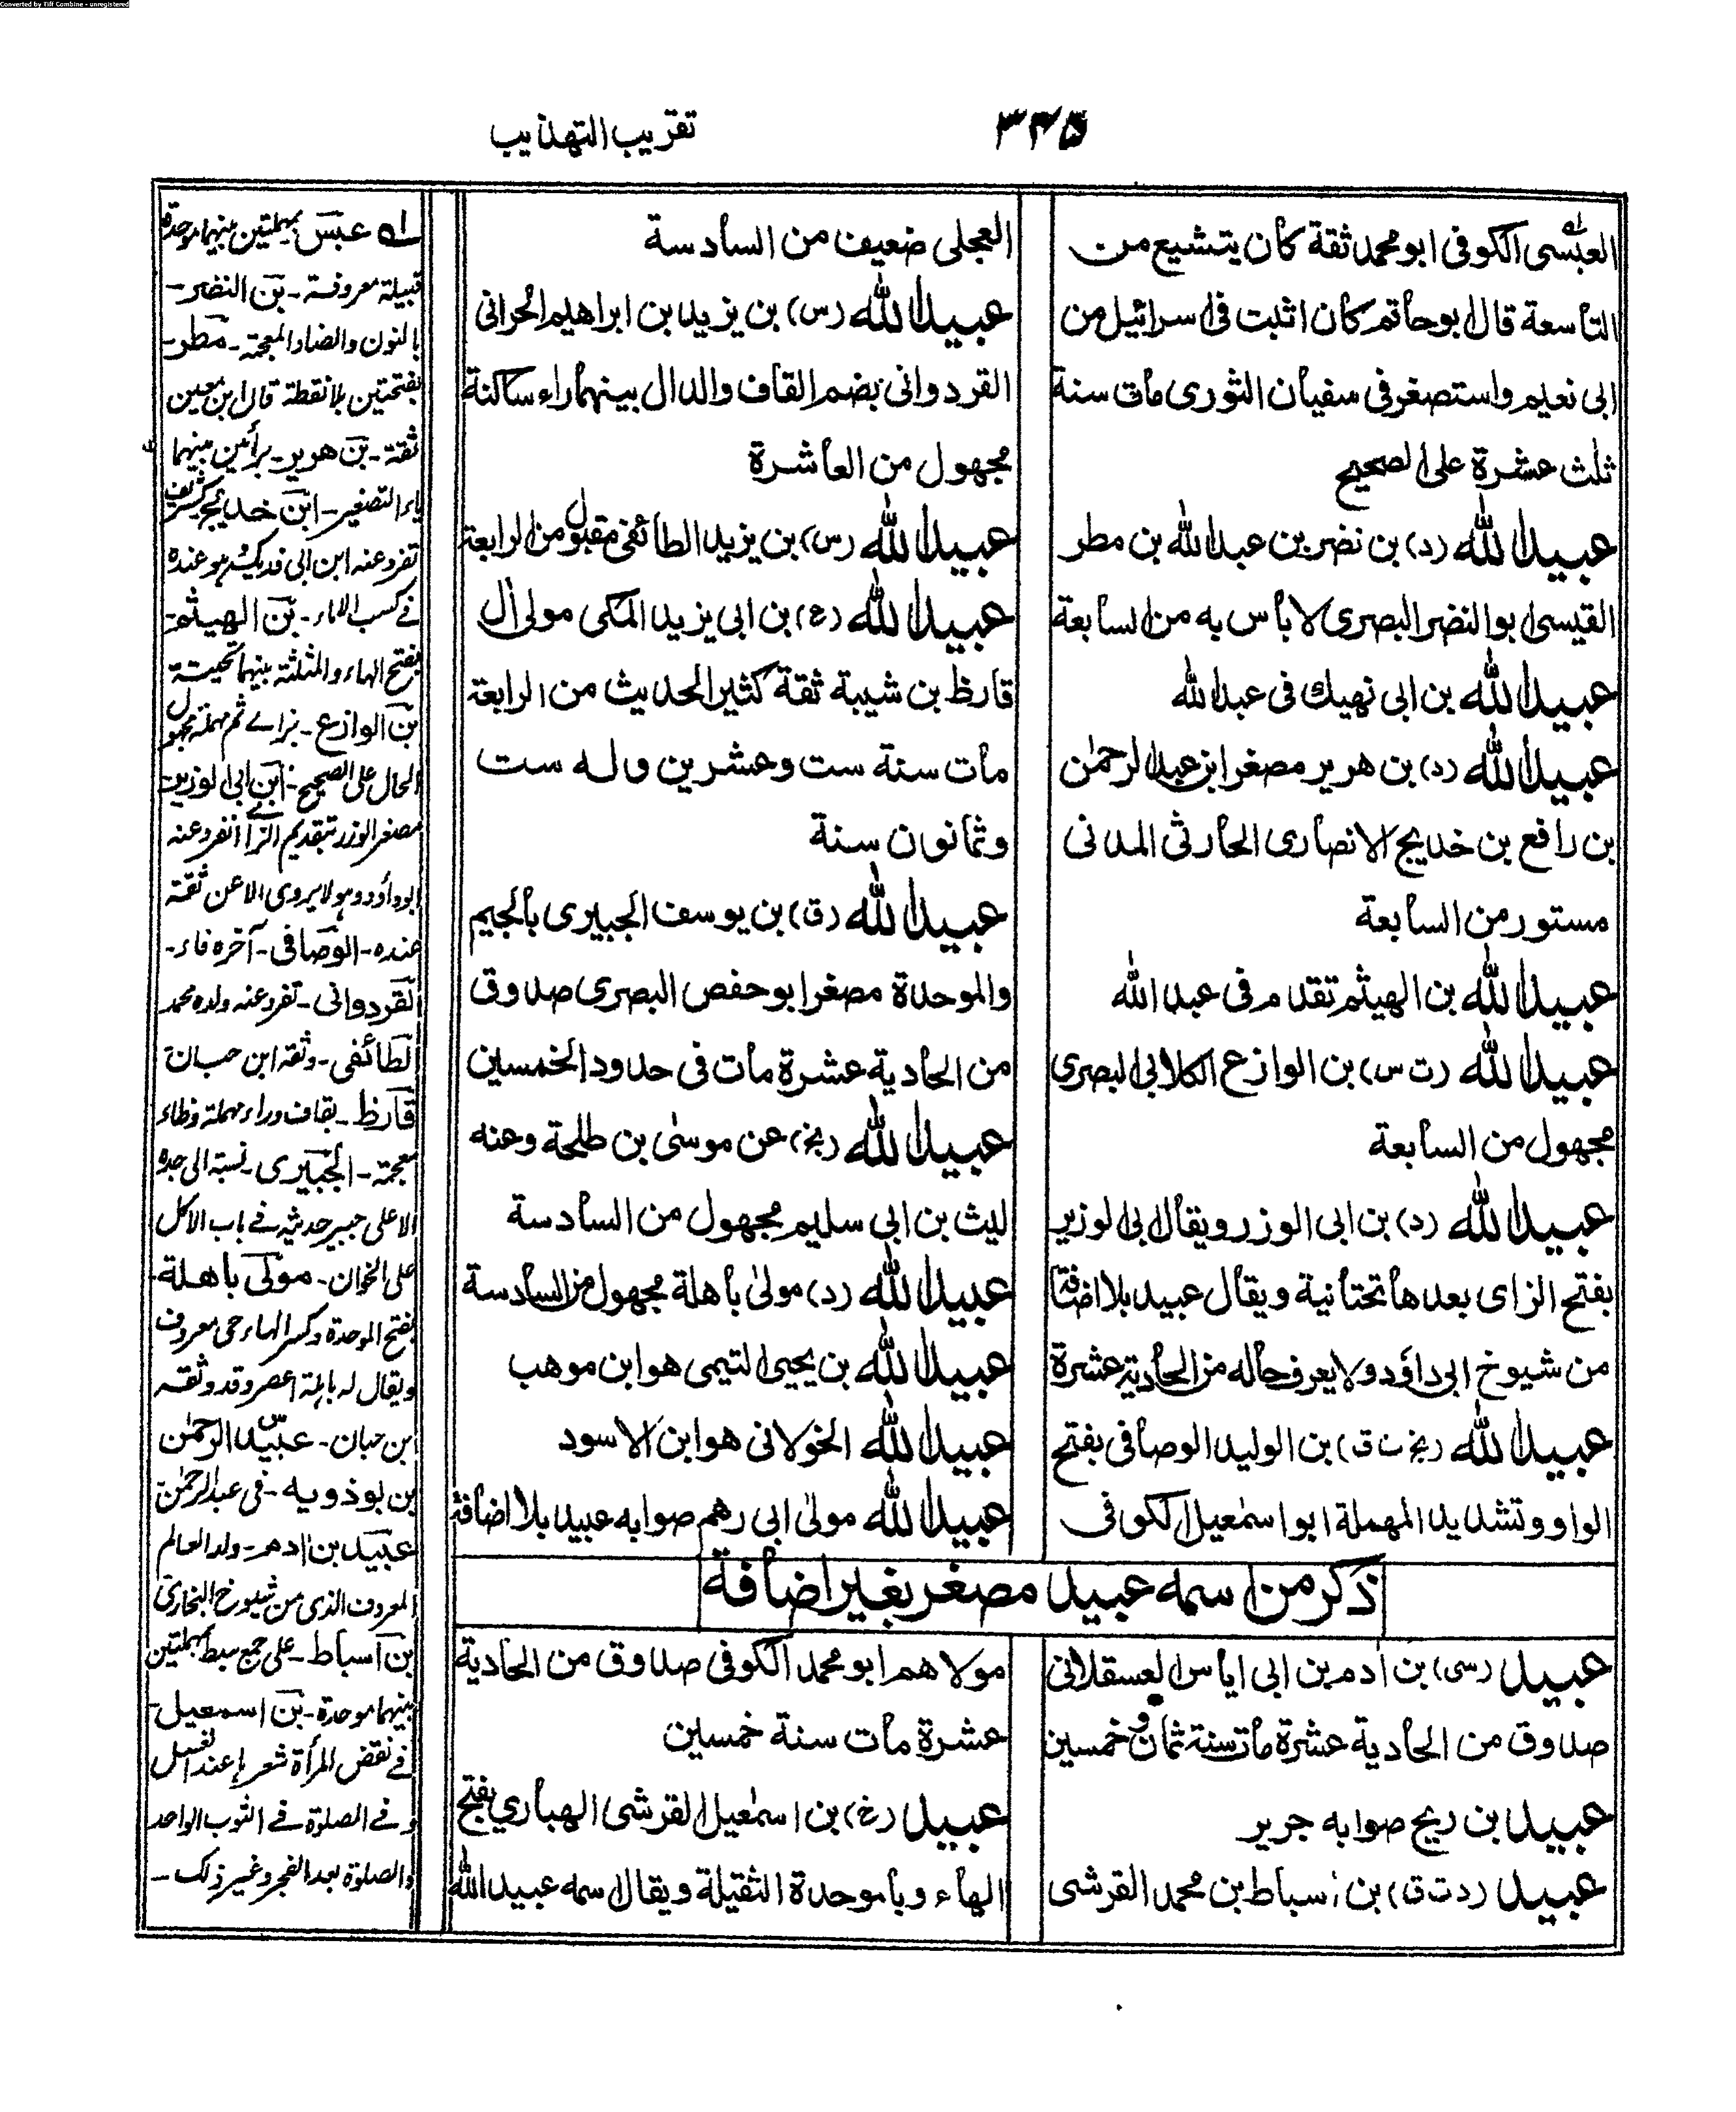 Converted by Tiff Combine - unregistered
٣٣٥
تقريب التهذيب
العبسى الكوفى ابو محمد ثقة كان يتشيع من
التاسعة قال ابو حاتم كان اثبت فى اسرائيل من
ابى نعيم واستصغر فى سفيان الثورى مات سنة
ثلث عشرة على الصحيح
عبيد الله (د) بن نضر بن عبد الله بن مطر
القيسى ابو النضر البصرى لا بأس به من السابعة
عبيد الله بن ابى نهيك فى عبد الله
عبيد الله (د) بن هرير مصغر ابن عبد الرحمٰن
بن رافع بن خديج الانصارى الحارثى المدنى
مستور من السابعة
عبيد الله بن الهيثم تقدم فى عبد الله
عبيد الله (ت س) بن الوازع الكلابى البصرى
مجهول من السابعة
عبيد الله (د) بن ابى الوزر ويقال ابى الوزير
بفتح الزاى بعدها تحتانية ويقال عبيد بلا اضافة
من شيوخ ابى داؤد ولا يعرف حاله من الحادية عشرة
عبيد الله (بخ ت ق) بن الوليد الوصافى بفتح
الواو وتشديد المهملة ابو اسمٰعيل الكوفى
العجلى ضعيف من السادسة
عبيد الله (س) بن يزيد بن ابراهيم الحرانى
القردوانى بضم القاف والدال بينهما راء ساكنة
مجهول من العاشرة
عبيد الله (س) بن يزيد الطائفى مقبول من الرابعة
عبيد الله (ع) بن ابى يزيد المكى مولى آل
قارظ بن شيبة ثقة كثير الحديث من الرابعة
مات سنة ست وعشرين وله ست
وثمانون سنة
عبيد الله (ق) بن يوسف الجبيرى بالجيم
والموحدة مصغر ابو حفص البصرى صدوق
من الحادية عشرة مات فى حدود الخمسين
عبيد الله (بخ) عن موسىٰ بن طلحة وعنه
ليث بن ابى سليم مجهول من السادسة
عبيد الله (د) مولىٰ باهلة مجهول من السادسة
عبيد الله بن يحيى التيمى هو ابن موهب
عبيد الله الخولانى هو ابن الاسود
عبيد الله مولىٰ ابى رهم صوابه عبيد بلا اضافة
ذكر من اسمه عبيد مصغر بغير اضافة
عبيد (سى) بن اٰدم بن ابى اياس العسقلانى
صدوق من الحادية عشرة مات سنة ثمان وخمسين
عبيد بن ريج صوابه جرير
عبيد (د ت ق) بن اسباط بن محمد القرشى
مولاهم ابو محمد الكوفى صدوق من الحادية
عشرة مات سنة خمسين
عبيد (خ) بن اسمٰعيل القرشى الهبارى بفتح
الهاء وبا موحدة الثقيلة ويقال اسمه عبيد الله
له عبس بمهملتين بينهما موحدة
قبيلة معروفة - بن النضر -
بالنون والضاد المعجمة - مطر -
بفتحتين بلا نقطة قال ابن معين
ثقة - بن هرير - برائين بينهما
ياء التصغير - ابن خديج كشريف
تفرد عنه ابن ابى فديك هو عنده
فے كسب الاماء - بن الهيثم -
بفتح الهاء والمثلثة بينهما تحتية
بن الوازع - بزاے ثم مهملة مجهول
الحال على الصحيح - ابن ابى الوزير
مصغر الوزر بتقديم الزاے انفرد عنه
ابو داؤد وهو لا يروى الا عن ثقة
عنده - الوصافى - آخره فاء -
القردوانى - تفرد عنه ولده محمد
الطائفى - وثقه ابن حبان
قارظ - بقاف وراء مهملة وظاء
معجمة - الجبيرى - نسبة الى جده
الاعلى جبير حديثه فے باب الاكل
على الخوان - مولى باهلة -
بفتح الموحدة وكسر الهاء حى معروف
ويقال له باهلة اعصر وقد وثقه
ابن حبان - عبيد الرحمٰن
بن بوذويه - فى عبد الرحمٰن
عبيد بن اٰدم - ولد العالم
المعروف الذى من شيوخ البخارى
بن اسباط - على جمع سبط بمهملتين
بينهما موحدة - بن اسمعيل -
فے نقض المرأة شعرها عند الغسل
وفے الصلوة فے الثوب الواحد
والصلوة بعد الفجر وغير ذلك -